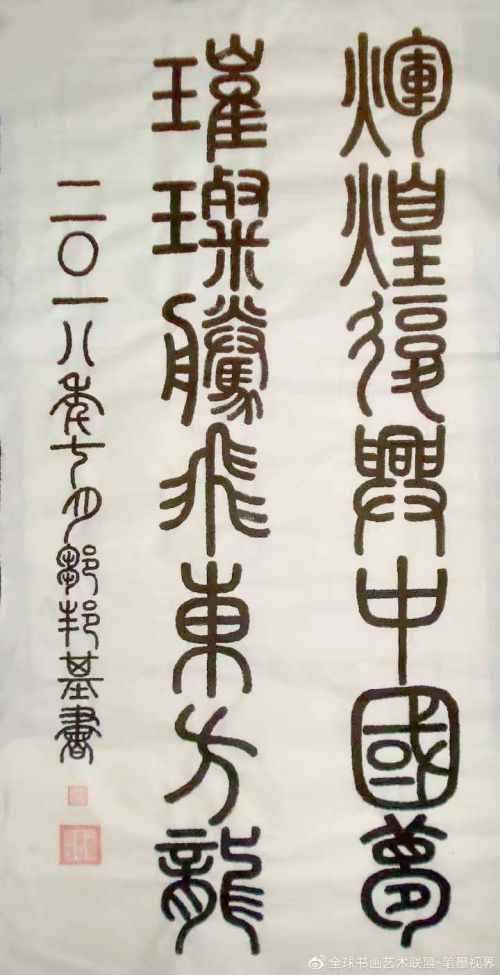 煇煌復興中國夢
璀璨騰飛東方龍
二〇一八年七月鄒邦基書
@全球书画艺术联盟-笔墨视界